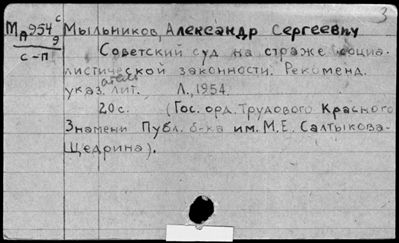 3
МА954 с/9 Мыльников, Александр Сергеевич
с-п Советский суд на страже социа-
листической законности. Рекоменд.
указатель лит. Л., 1954.
20с. (Гос. орд. Трудового Красного
Знамени Публ. б-ка им. М.Е. Салтыкова-
Щедрина).